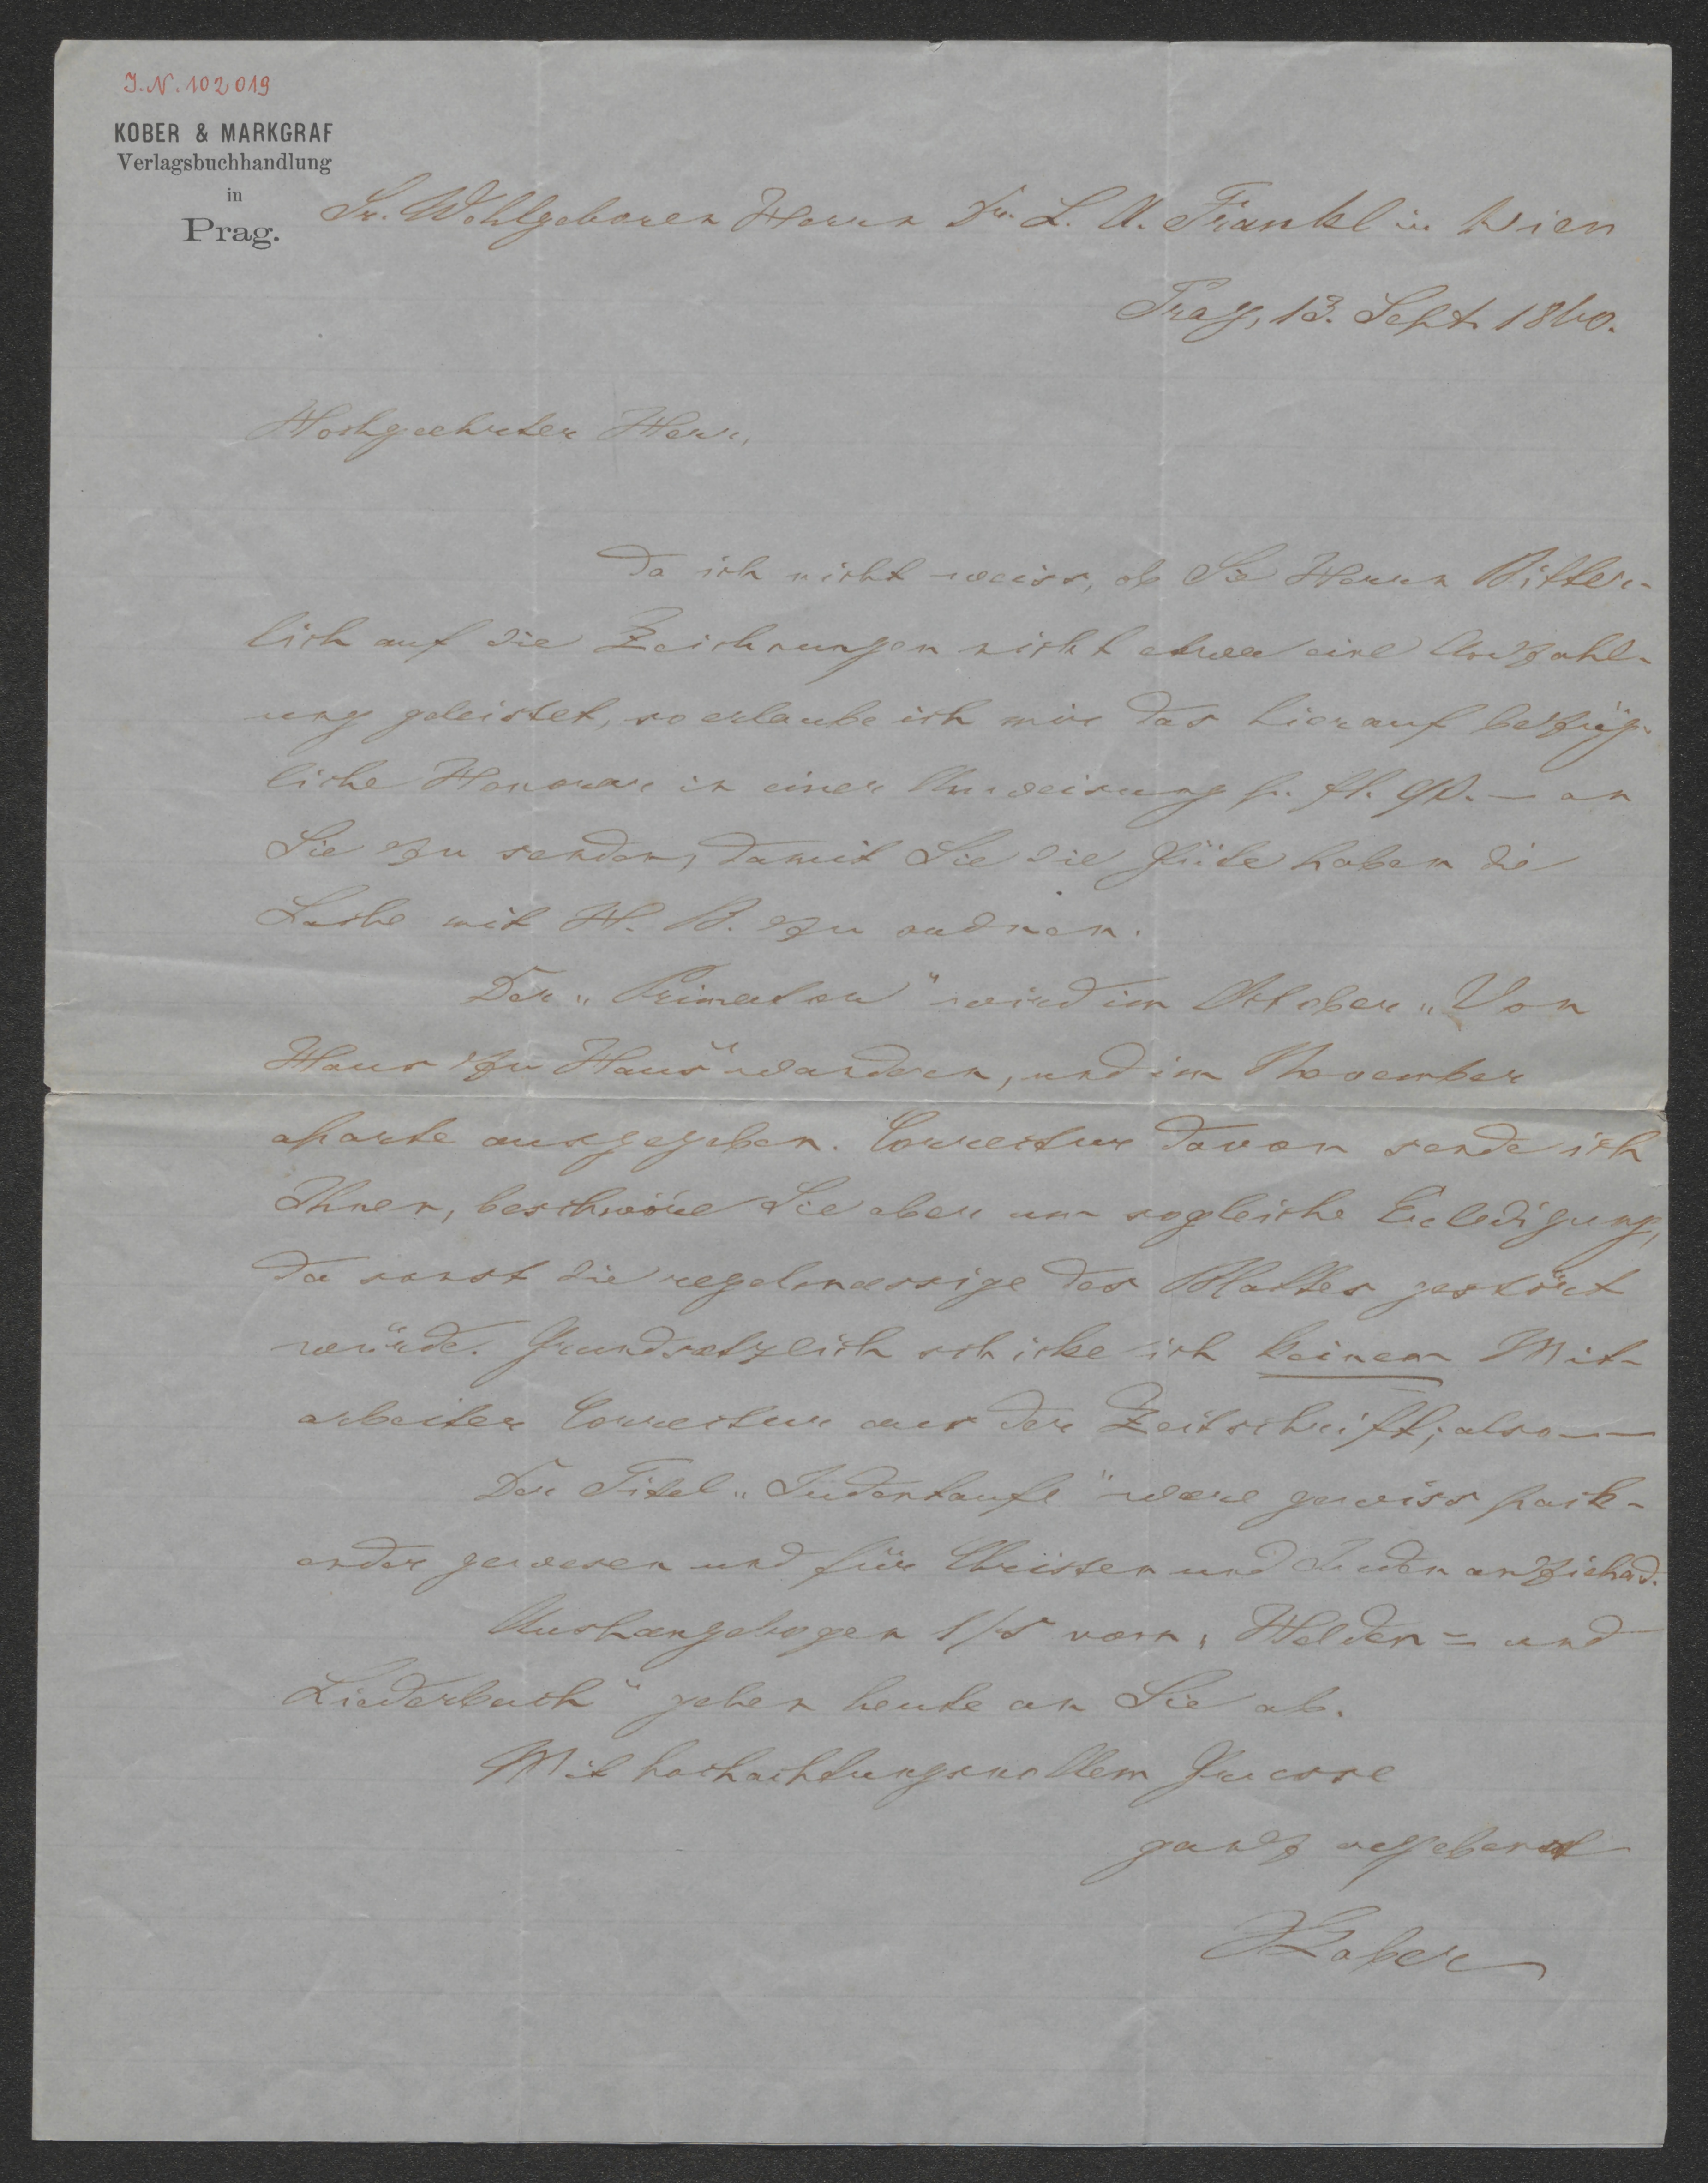 J.N. 102019
KOBER & MARKGRAF
Verlagsbuchhandlung
in
Prag.
Sr. Wohlgeboren Herrn Dr. L. A. Frankl in Wien
Prag, 13. Sept. 1860.
Hochgeehrter Herr,
Da ich nicht weiss, ob Sie Herrn Bitter-
lich auf die Zeichnungen nicht etwa eine Anzahl-
ung geleistet, so erlaube ich mir das hierauf bezüg-
liche Honorar in einer Anweisung p. fl. 90. – an
Sie zu senden, damit Sie die Güte haben die
Sache mit H. B. zu ordnen.
Der „Primator" wird im October „Von
Haus zu Haus" wandern, und im November
aparte ausgegeben. Correctur davon sende ich
Ihnen, beschwöre Sie aber um sogleiche Erledigung,
da sonst die regelmaessige des Blattes gestört
würde. Grundsatzlich schicke ich keinem Mit-
arbeiter Correctur aus der Zeitschrift; also – –
Der Titel „Judentaufe" waere gewiss pack-
ender gewesen und für Christen und Juden anziehend.
Aushangebogen 1/5 vom „Helden- und
Liederbuch" gehen heute an Sie ab.
Mit hochachtungsvollem Grusse
ganz ergebenst
Kober